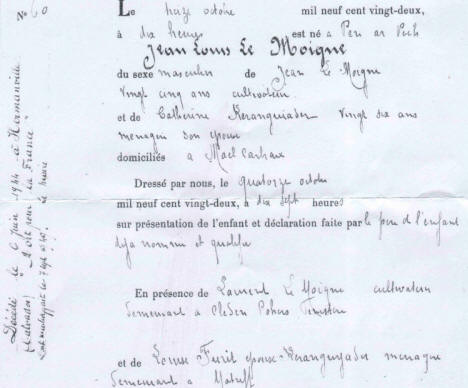 N° 60
Le treize octobre mil neuf cent vingt-deux,
à dix heures est né à Pen ar Pech
Jean Louis Le Moigne
du sexe masculin de Jean Le Moigne
vingt cinq ans cultivateur
et de Catherine Keranguiader vingt six ans
menagère son épouse
domiciliés à Mael Carhaix
Dressé par nous, le quatorze octobre
mil neuf cent vingt-deux, à dix sept heures
sur présentation de l'enfant et déclaration faite par le père de l'enfant
déja nommé et qualifié
En présence de Laurent Le Moigne cultivateur
demeurant à Cleden Poher Finistère
et de Louise Furit épouse Keranguyader menagère
demeurant à
Décédé le 6 juin 1944 à Hermanville
(Calvados) "Mort pour la France"
le 7 sept. le maire